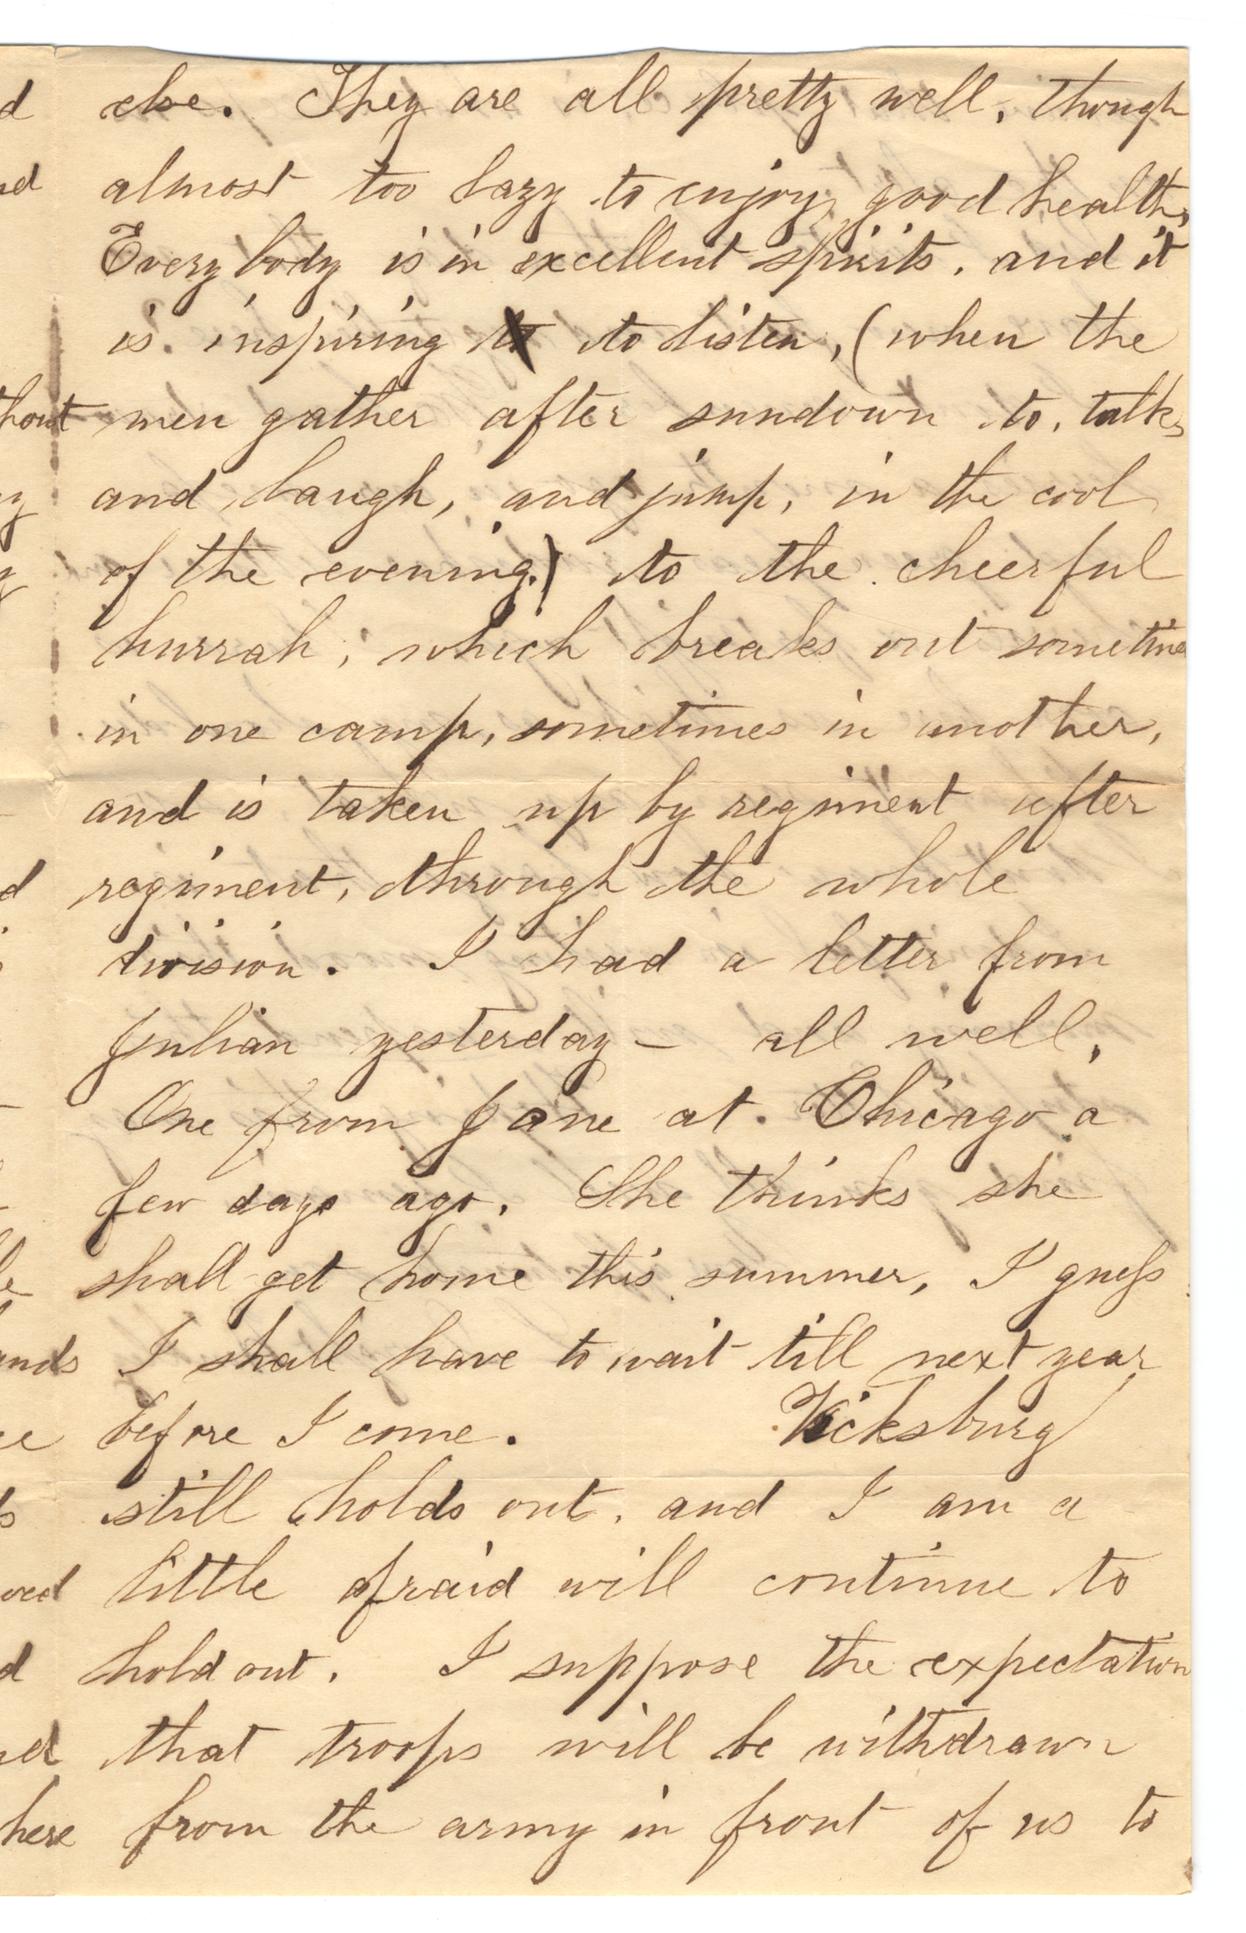 else. They are all pretty well, though
almost too lazy to enjoy good health,
Everybody is in excellent spirits, and it
is inspiring to listen, (when the
men gather after sundown to talk,
and laugh, and jump, in the cool
of the evening,) to the cheerful
hurrah, which breaks out sometimes
in one camp, sometimes in another,
and is taken up by regiment after
regiment, through the whole
division. I had a letter from
Julian yesterday — all well,
One from Jane at Chicago a
few days ago. She thinks she
shall get home this summer, I guess
I shall have to wait till next year
before I come. Vicksburg
still holds out, and I am a
little afraid will continue to
hold out. I suppose the expectation
that troops will be withdrawn
from the army in front of us to